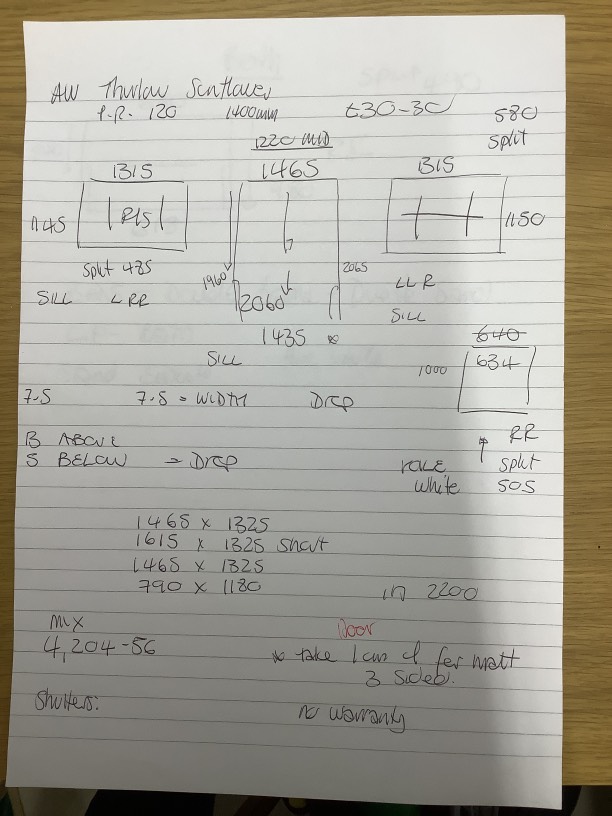 AW Thurlow
P.R. 120 1400mm £30-30 580
split
1220 MID
1315 1465 1315
1145 R15 1150
split 485 1960 2065
SILL L RR 2060 LL R
SILL
1435 *
SILL 640
1000 634
7.5 7.5 = WIDTH DROP
B ABOVE RR
5 BELOW = DROP split
white 505
1465 x 1325
1615 x 1325
1465 x 1325
790 x 1180 in 2200
Door
mx
4,204-56 * take 1cm of for matt
3 sides.
Shutters: No warranty